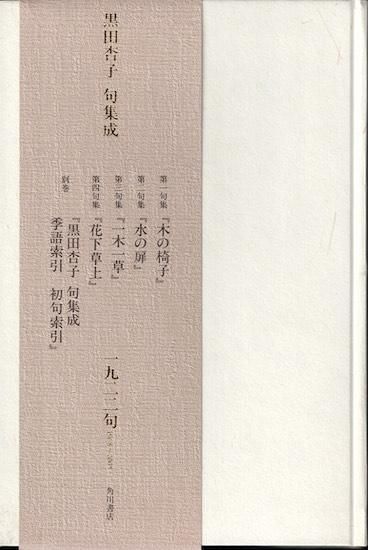 黒田杏子 句集成
第一句集 『木の椅子』
第二句集 『水の扉』
第三句集 『一木一草』
第四句集 『花下草上』
別巻 『黒田杏子 句集成
季語索引 初句索引』
一九二二句
角川書店